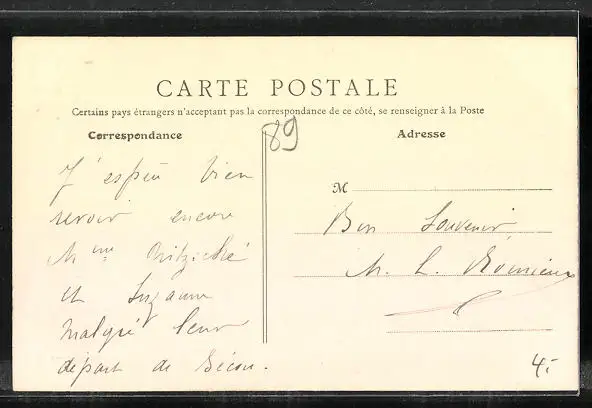 CARTE POSTALE
Certains pays étrangers n'acceptant pas la correspondance de ce côté, se renseigner à la Poste
Correspondance
Adresse
89
J'espère bien
revoir encore
Mme
et Suzanne
malgré leur
départ de Bécon.
M
Bon Souvenir
M. L.
4.-